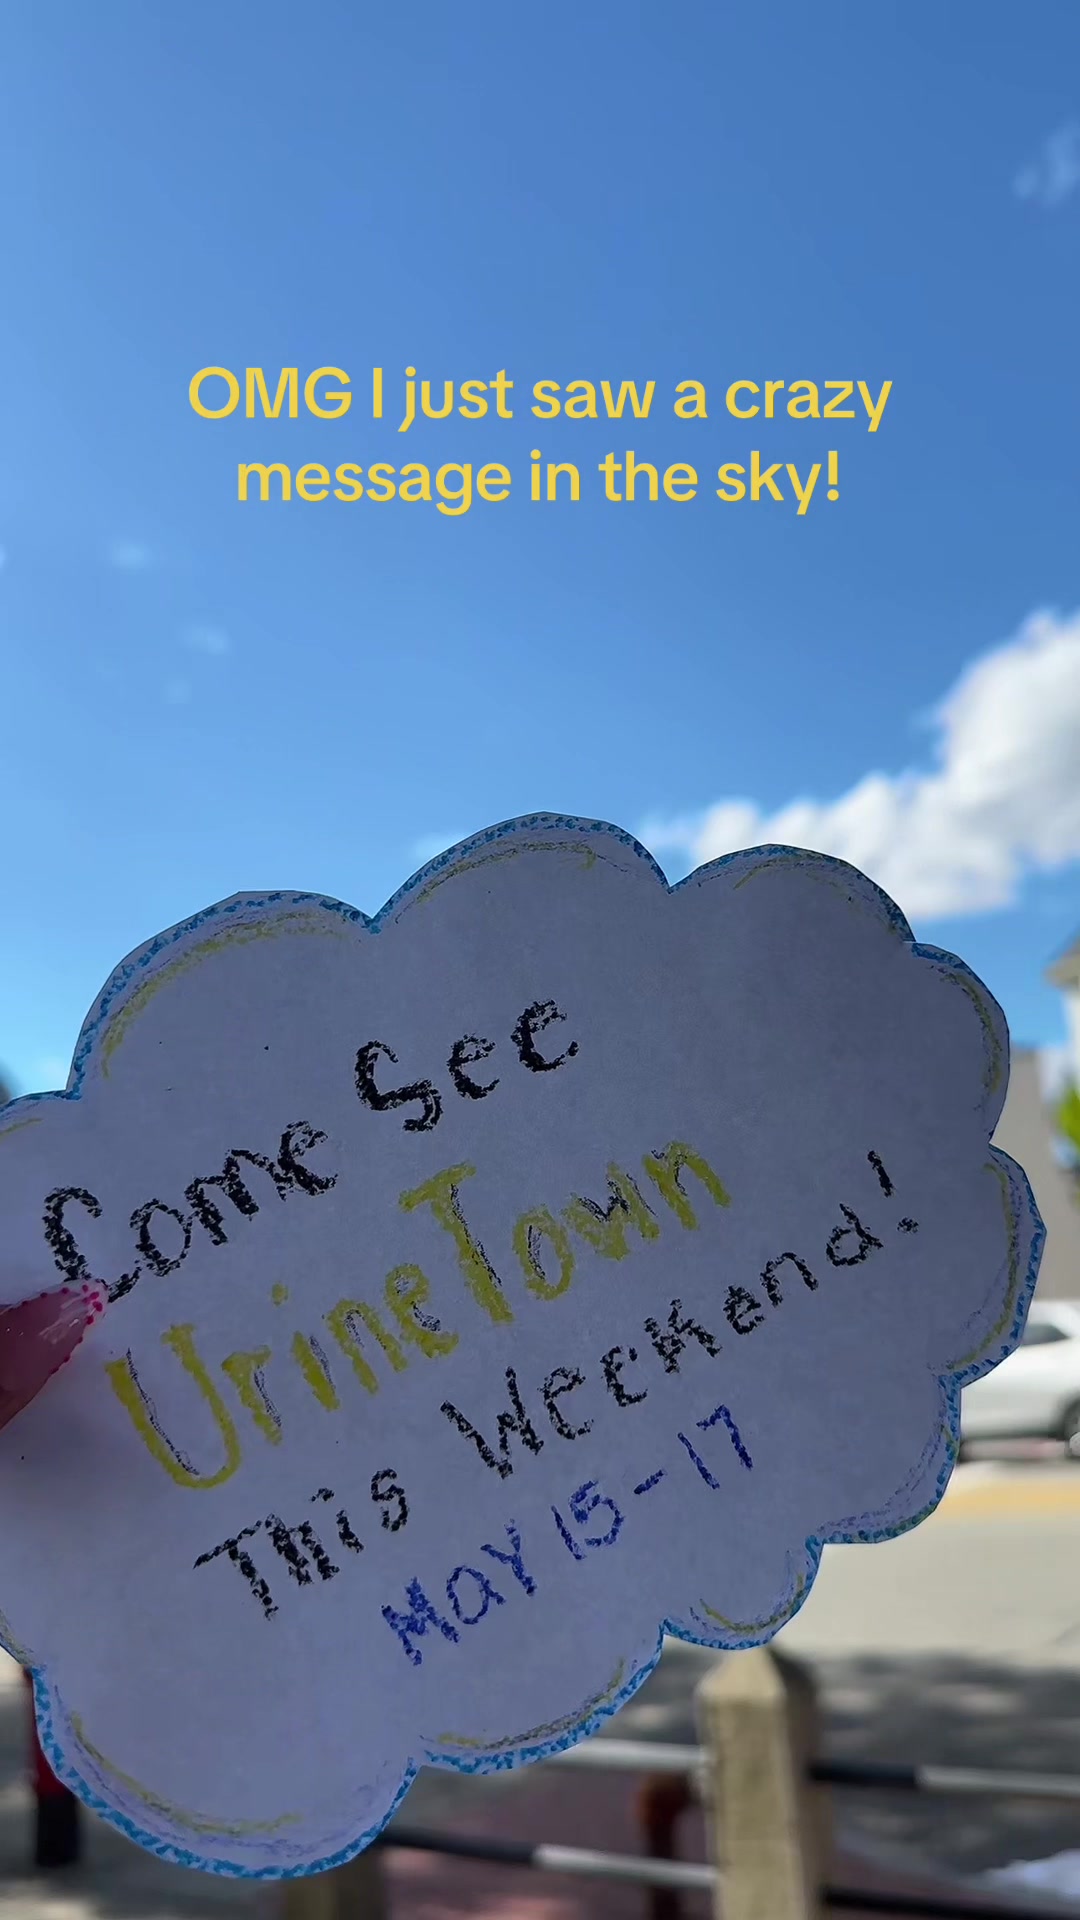 OMG I just saw a crazy
message in the sky!
Come See
UrineTown
This Weekend!
MAY 15-17